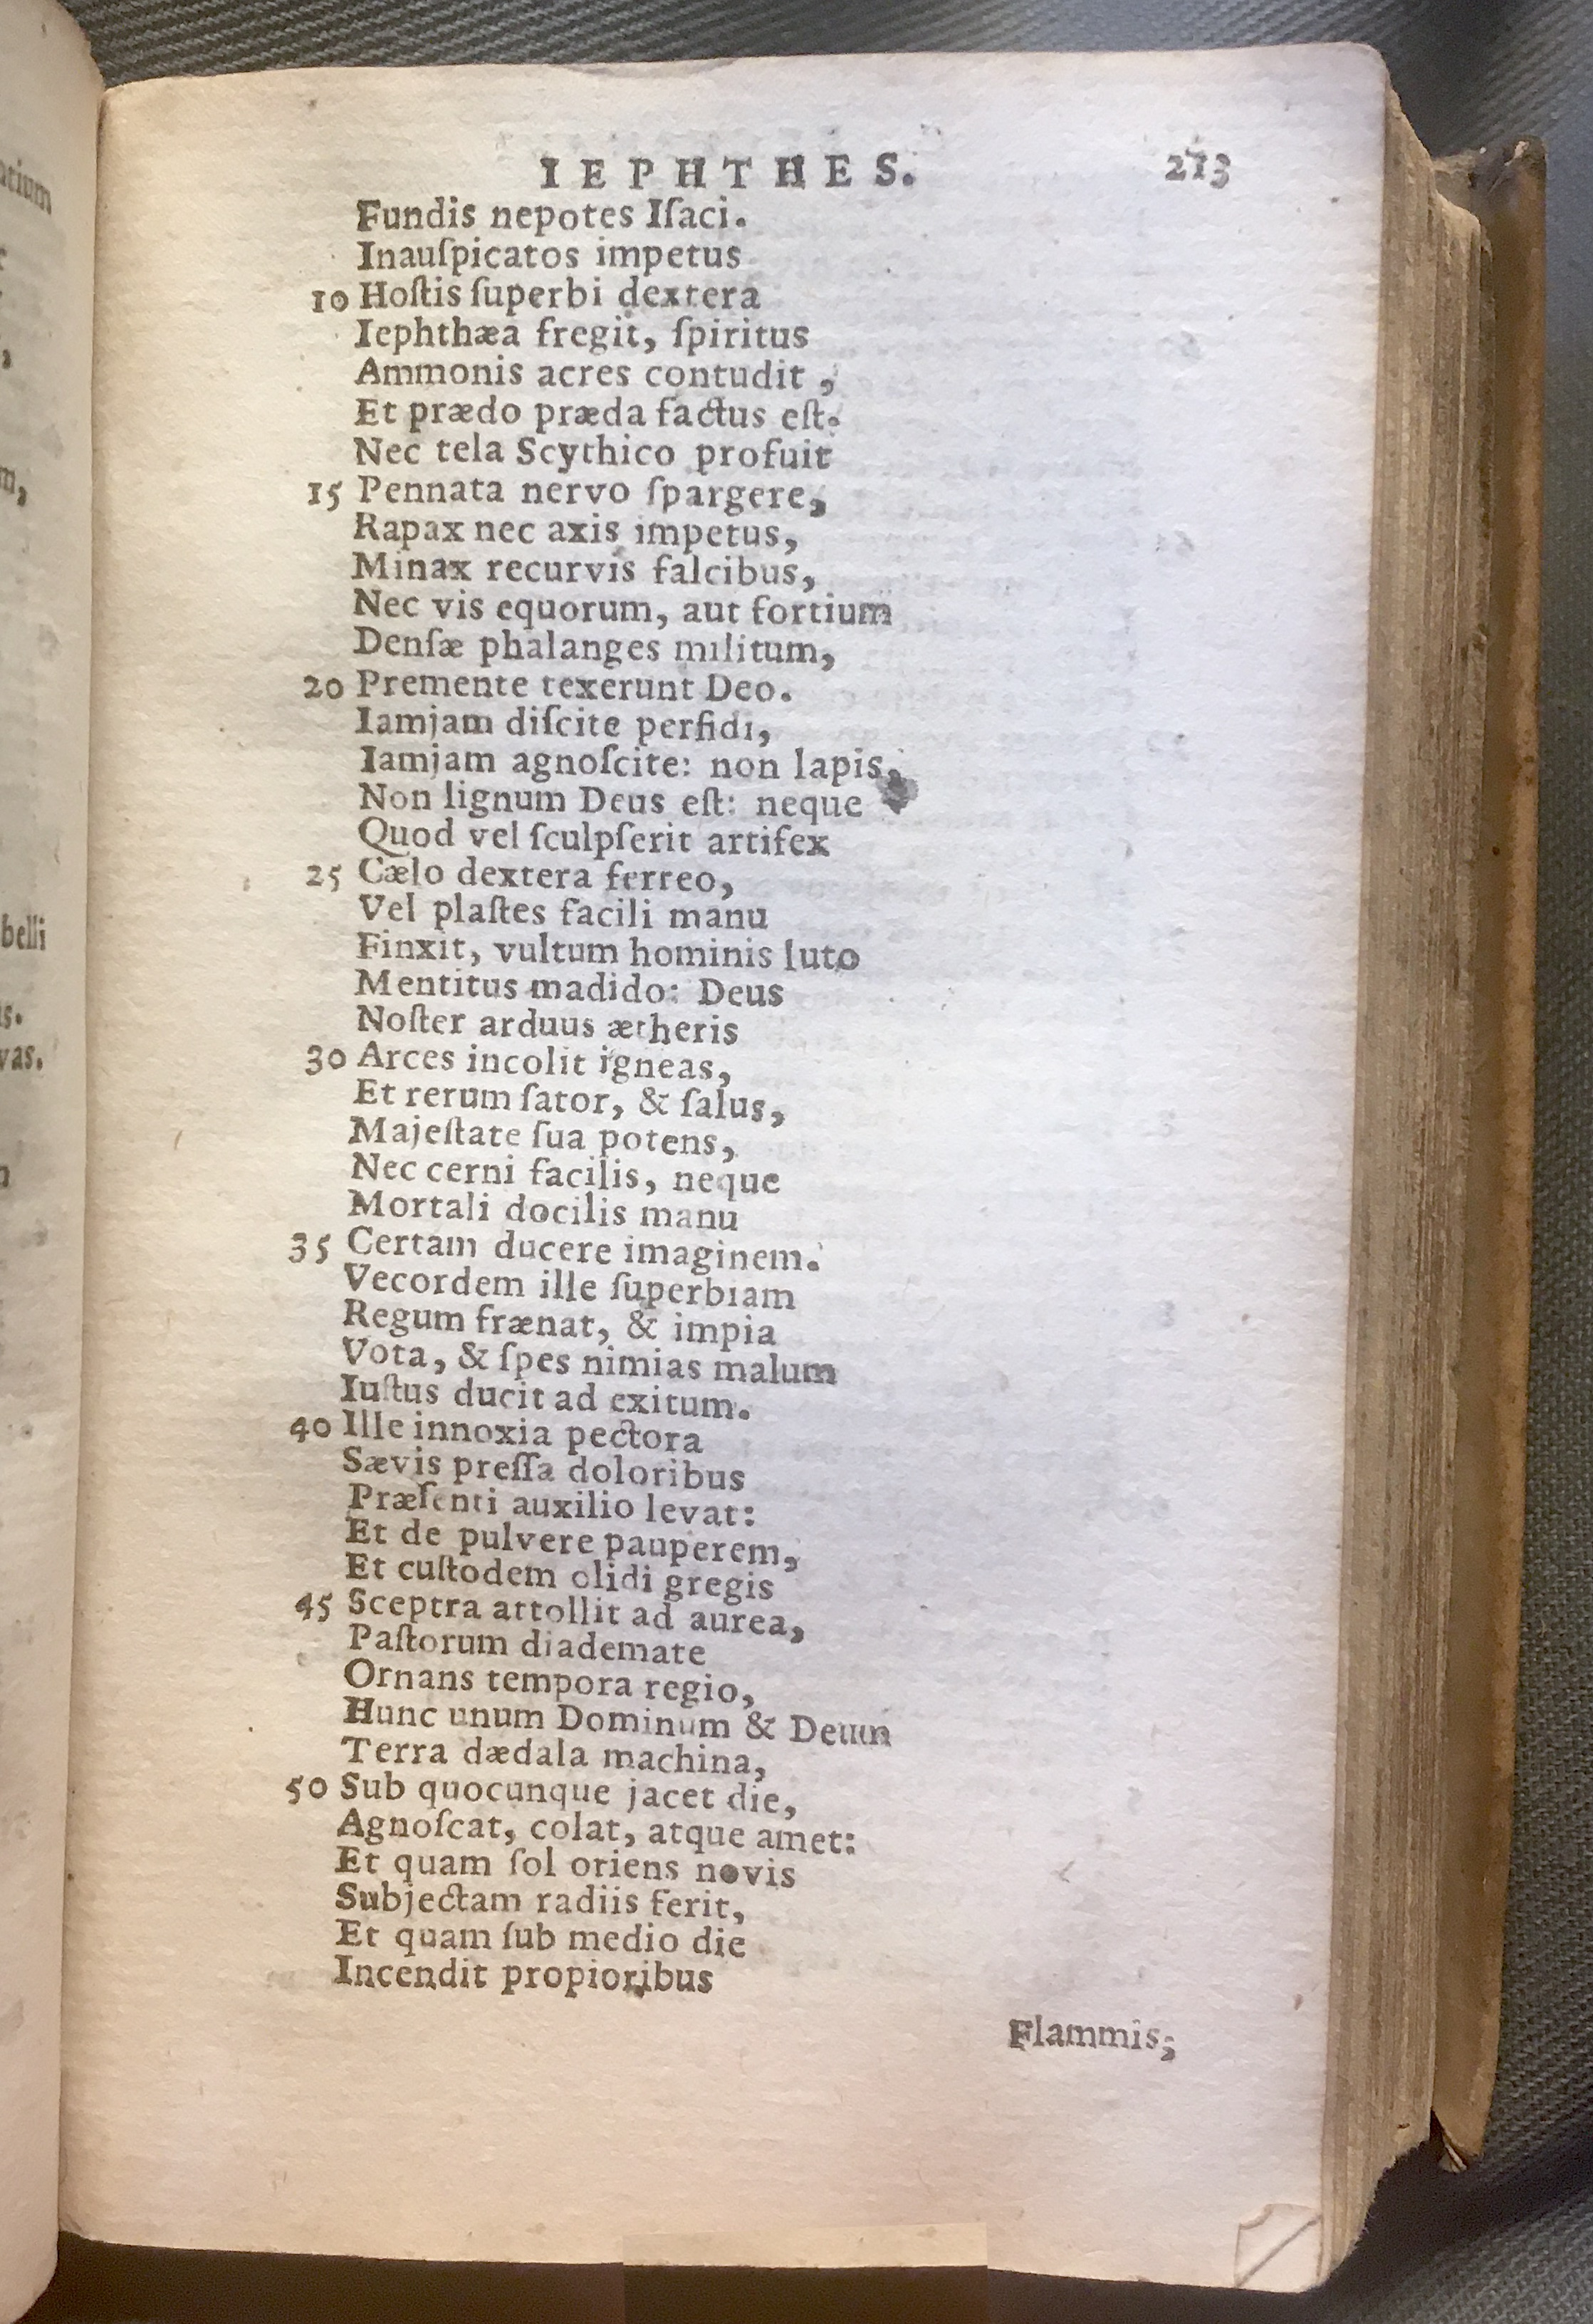 IEPHTHES. 213
Fundis nepotes Iſaci.
Inauſpicatos impetus
10 Hoſtis ſuperbi dextera
Iephthæa fregit, ſpiritus
Ammonis acres contudit,
Et prædo præda factus eſt.
Nec tela Scythico profuit
15 Pennata nervo ſpargere,
Rapax nec axis impetus,
Minax recurvis falcibus,
Nec vis equorum, aut fortium
Denſæ phalanges militum,
20 Premente texerunt Deo.
Iamjam diſcite perfidi,
Iamjam agnoſcite: non lapis,
Non lignum Deus eſt: neque
Quod vel ſculpſerit artifex
25 Cælo dextera ferreo,
Vel plaſtes facili manu
Finxit, vultum hominis luto
Mentitus madido: Deus
Noſter arduus ætheris
30 Arces incolit igneas,
Et rerum ſator, & ſalus,
Majeſtate ſua potens,
Nec cerni facilis, neque
Mortali docilis manu
35 Certam ducere imaginem.
Vecordem ille ſuperbiam
Regum frænat, & impia
Vota, & ſpes nimias malum
Iuſtus ducit ad exitum.
40 Ille innoxia pectora
Sævis preſſa doloribus
Præſenti auxilio levat:
Et de pulvere pauperem,
Et cuſtodem olidi gregis
45 Sceptra attollit ad aurea,
Paſtorum diademate
Ornans tempora regio,
Hunc unum Dominum & Deum
Terra dædala machina,
50 Sub quocunque jacet die,
Agnoſcat, colat, atque amet:
Et quam ſol oriens novis
Subjectam radiis ferit,
Et quam ſub medio die
Incendit propioribus
Flammis;
belli
vas.